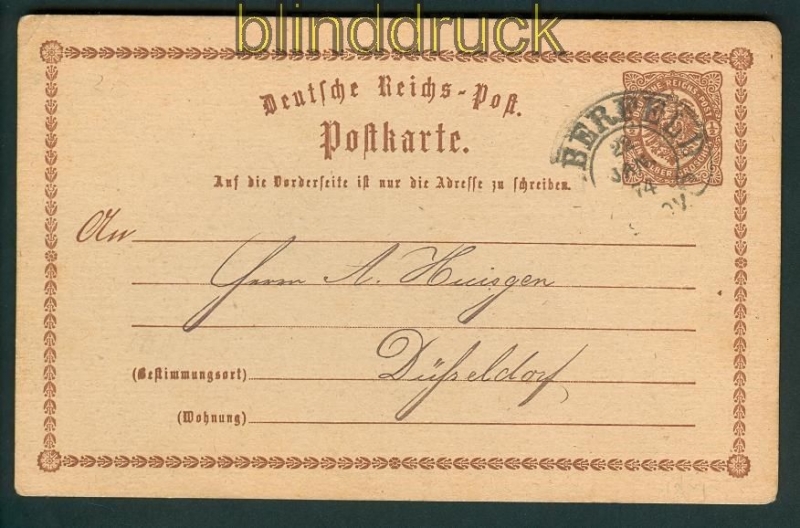 blinddruck
Deutsche Reichs-Post.
Postkarte.
Auf die Vorderseite ist nur die Adresse zu schreiben.
BERFELD
JAN
74
An
Herrn A. Huisgen
(Bestimmungsort)
Düsseldorf
(Wohnung)